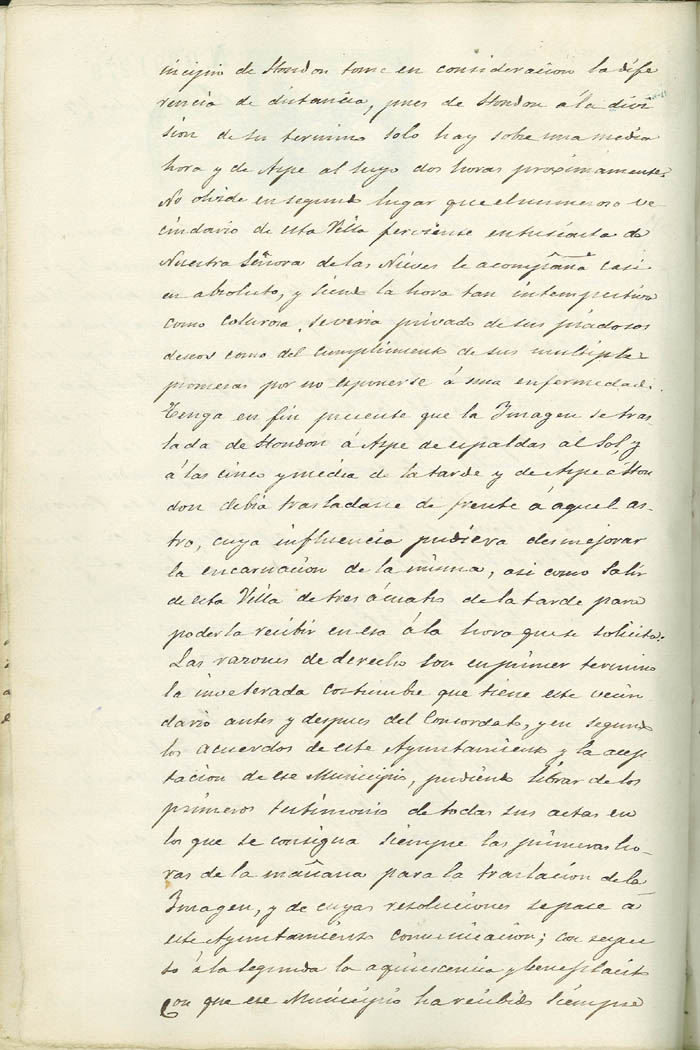 incipio de Hondon tome en consideracion la dife
rencia de distancia, pues de Hondon á la divi
sion de su termino solo hay sobre una media
hora y de Aspe al suyo dos horas proximamente.
No olvide en segundo lugar que el numeroso ve
cindario de esta Villa ferviente entusiasta de
Nuestra Señora de las Nieves le acompñana casi
en absoluto, y siendo la hora tan intempestiva
como calurosa, se veria privado de sus piadosos
deseos como del cumplimiento de sus multiples
promesas por no esponerse á una enfermedad.
Tenga en fin presente que la Imagen se tras
lada de Hondon á Aspe de espaldas al Sol, y
á las cinco y media de la tarde y de Aspe á Hon
don debia trasladarse de frente á aquel as-
tro, cuya influencia pudiera desmejorar
la encarnacion de la misma, asi como salir
de esta Villa de tres á cuatro de la tarde para
poderla recibir en esa á la hora que se solicita.
Las razones de derecho son en primer termino
la inveterada costumbre que tiene este vecin
dario antes y despues del Concordato, y en segundo
los acuerdos de este Ayuntamiento y la acep
tacion de ese Municipio, pudiendo librar de los
primeros testimonio de todas sus actas en
los que se consigna siempre las primeras ho-
ras de la mañana para la traslacion de la
Imagen, y de cuyas resoluciones se pasa á
este Ayuntamiento comunicacion; con respec
to á la segunda la aquiescencia y beneplacito
con que ese Municipio ha recibido siempre